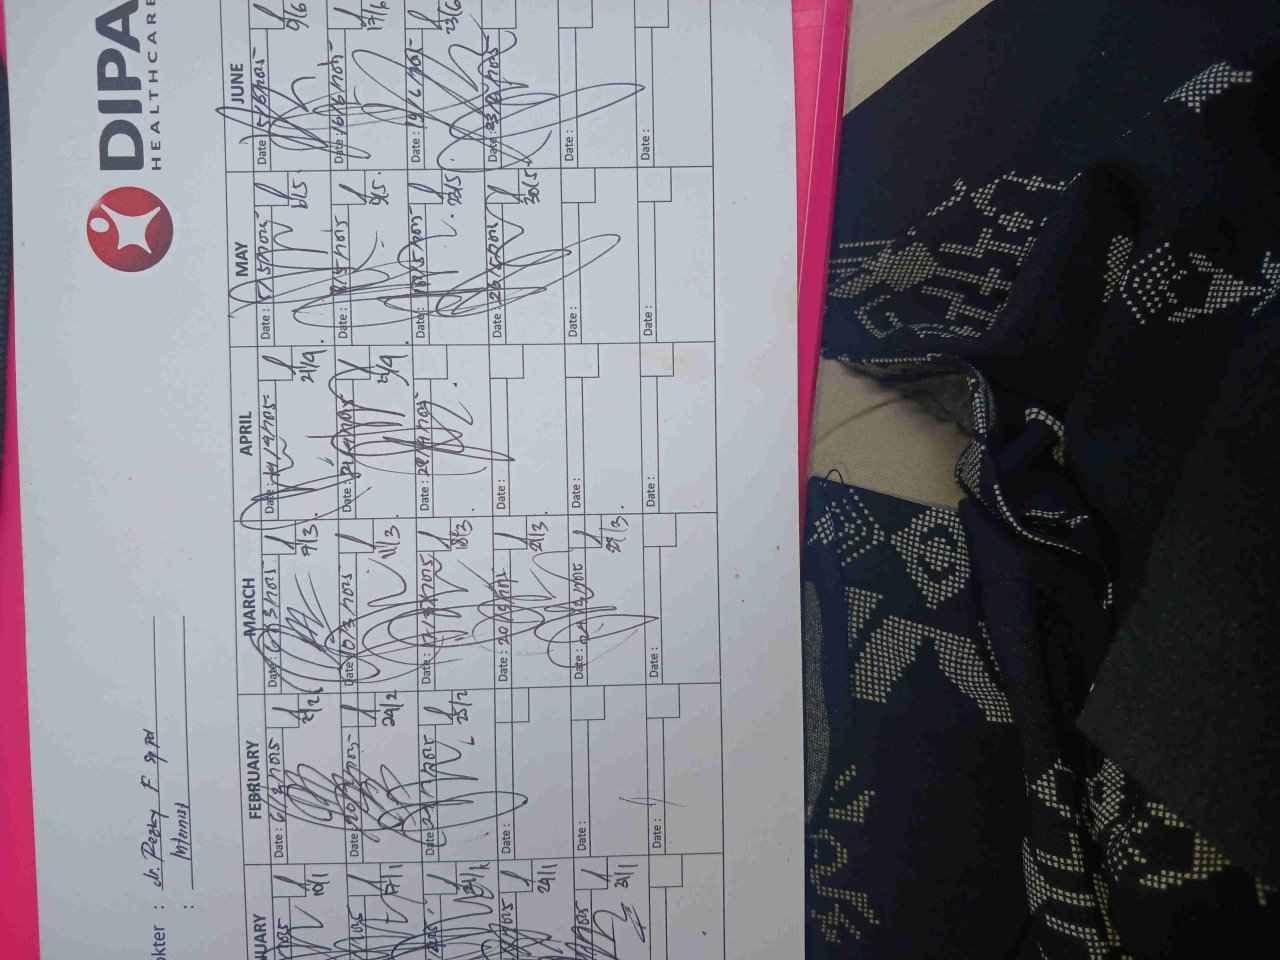 DIPA
HEALTHCARE
okter : dr. Pezzy F Sp PD
: Internist
NUARY
2025
10/1
2025
17/1
24/1
2025
24/1
2025
31/1
FEBRUARY
Date : 6/2/2025
Date : 20/2/2025
24/2
Date : 2025
25/2
Date :
Date :
Date :
MARCH
Date : 6/3/2025
9/3
Date : 10/3/2025
11/3
Date : 17/3/2025
18/3
Date : 20/3/2025
21/3
Date : 2025
27/3
Date :
APRIL
Date : 14/4/2025
21/4
Date : 21/4/2025
Date : 28/4/2025
Date :
Date :
Date :
MAY
Date : 5/5/2025
6/5
Date : 8/5/2025
9/5
Date : 18/5/2025
23/5
Date : 26/5/2025
30/5
Date :
Date :
JUNE
Date : 5/6/2025
9/6
Date : 16/6/2025
17/6
Date : 19/6/2025
23/6
Date : 23/6/2025
Date :
Date :